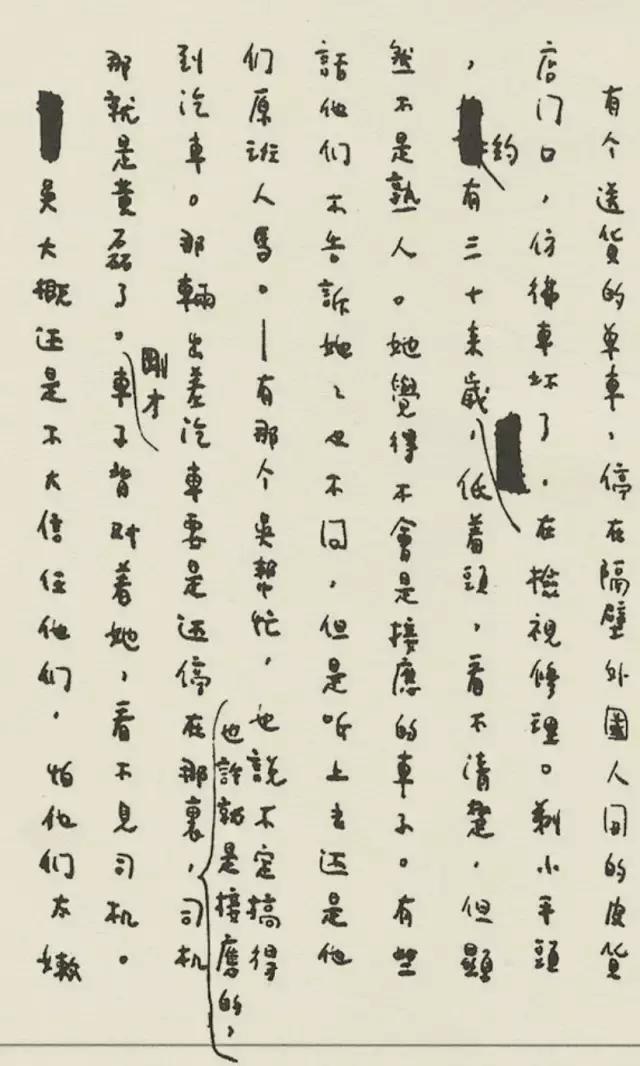 有个送貨的单車，停在隔壁外國人開的皮貨
店门口，仿彿車坏了，在檢視修理。剃小平頭
，約有三十來歲，低着頭，看不清楚，但顯
然不是熟人。她覺得不會是接應的車子。有些
話他们不告訴她〻也不问，但是听上去还是他
们原班人馬。—有那个吳幫忙，也說不定搞得
到汽車。那輛出差汽車要是还停在那裏，也許就是接應的，司机
那就是黄磊了。剛才車子背对着她，看不見司机。
吳大概还是不大信任他们，怕他们太嫩